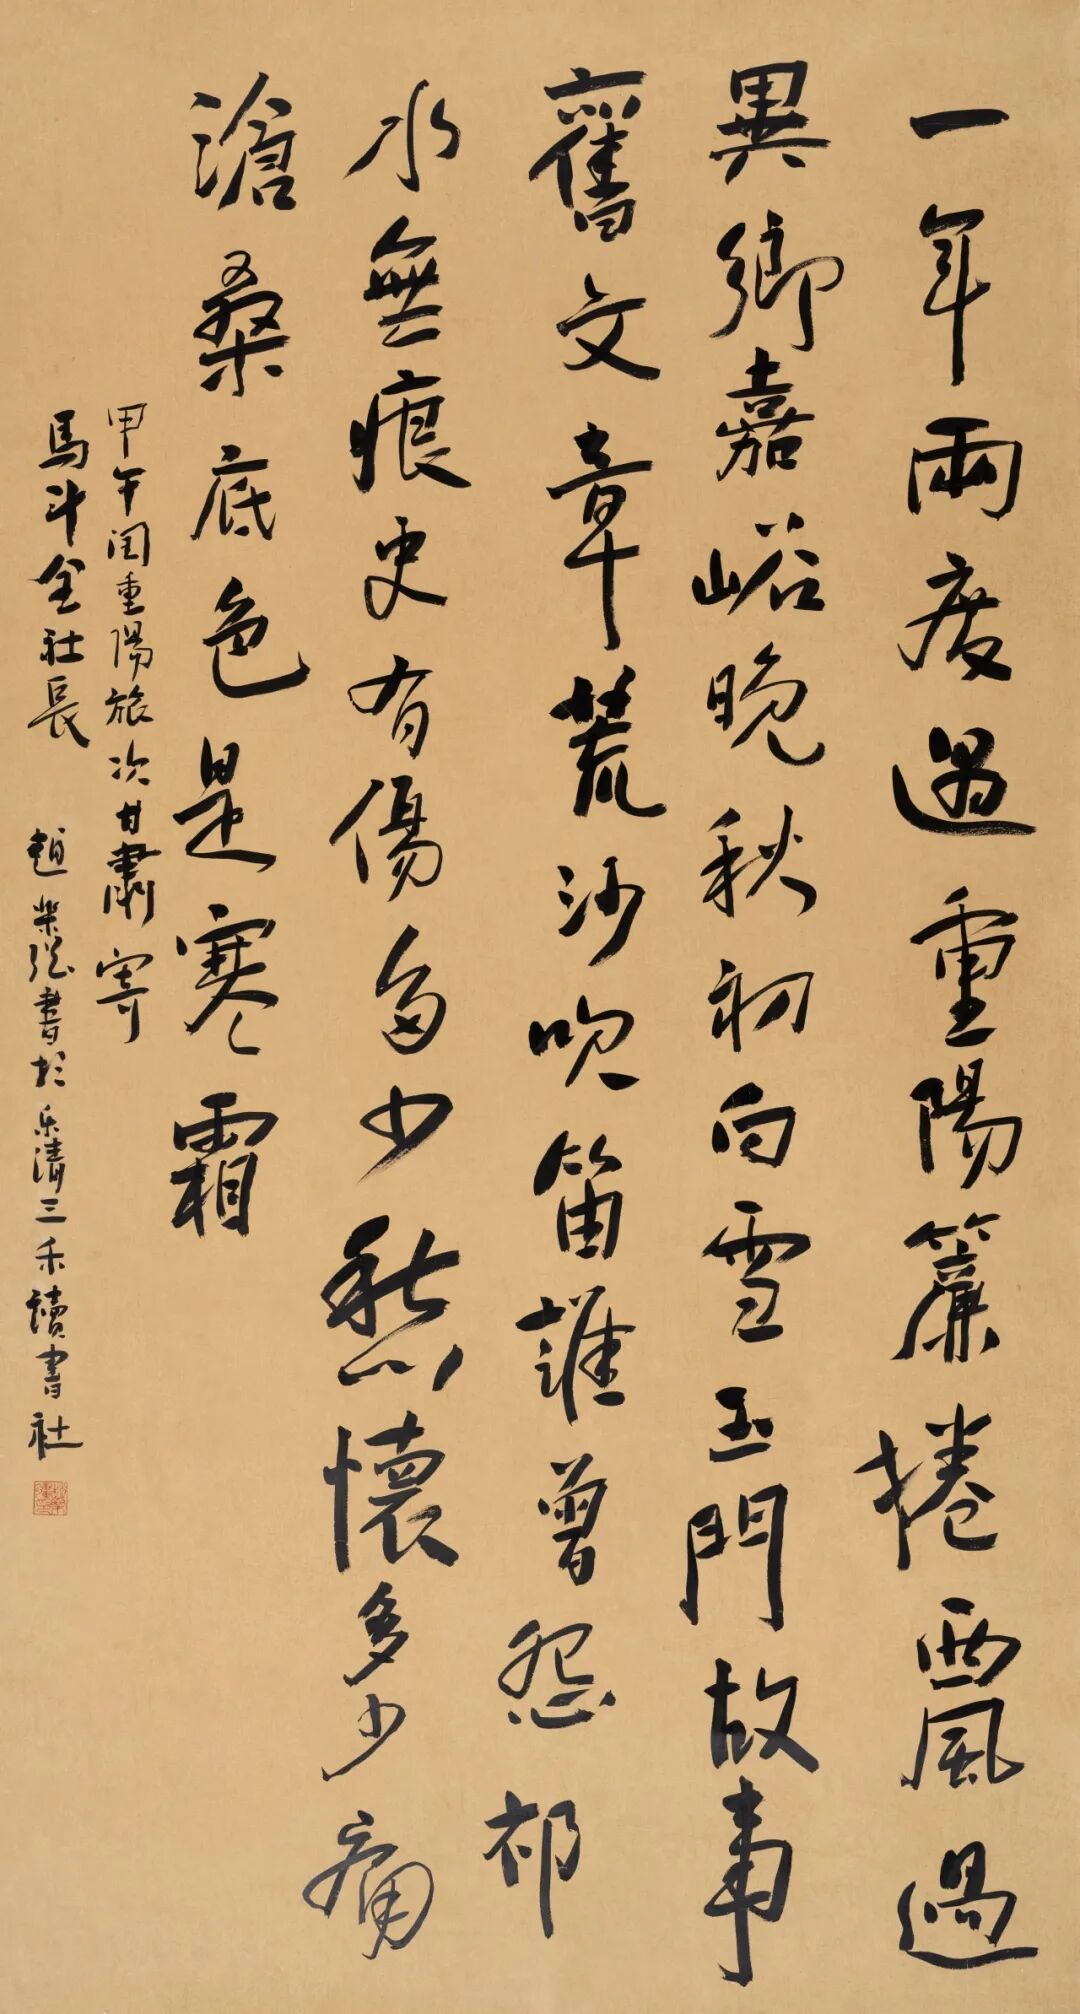 一年兩度遇重陽簾捲西風過
異鄉嘉峪晚秋初白雪玉門故事
舊文章荒沙吹笛誰曾怨祁
水無痕史有傷多少愁懷多少痛
滄桑底色是寒霜
甲午閏重陽旅次甘肅寄
馬斗全社長 趙樂強書於乐清三禾讀書社